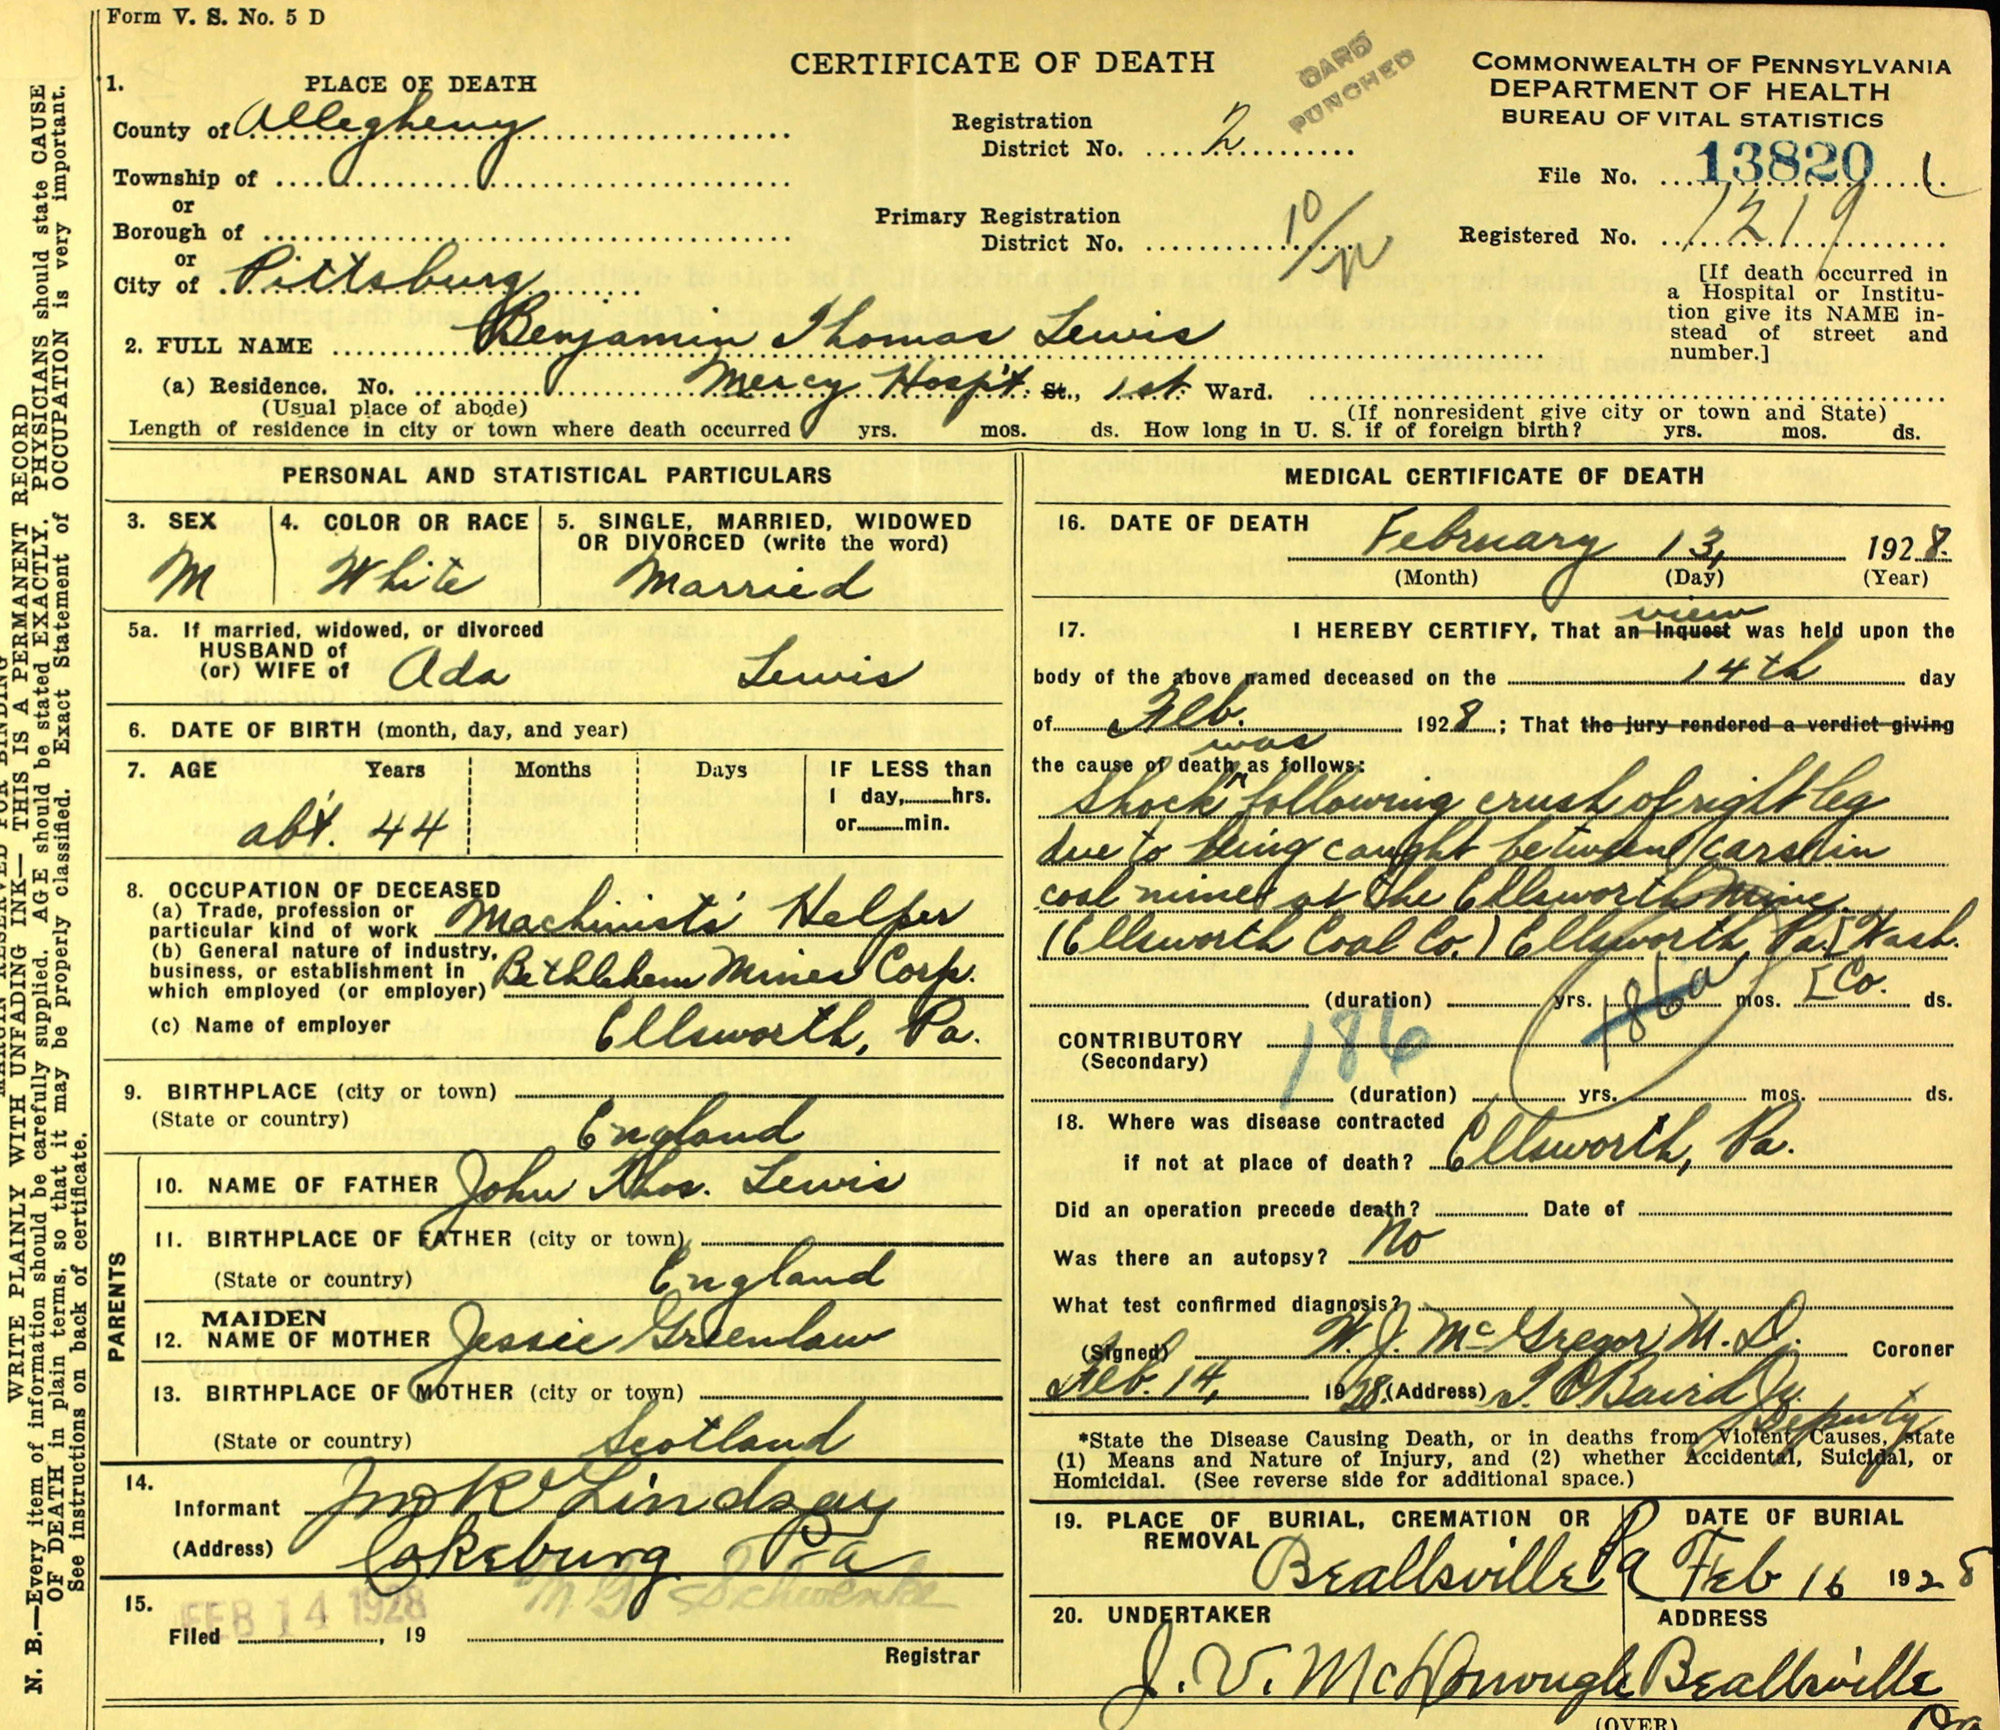 Form V. S. No. 5 D
CERTIFICATE OF DEATH
CARD PUNCHED
COMMONWEALTH OF PENNSYLVANIA
DEPARTMENT OF HEALTH
BUREAU OF VITAL STATISTICS
1. PLACE OF DEATH
County of Allegheny
Township of
or
Borough of
or
City of Pittsburg
Registration District No. 2
Primary Registration District No. 10/
File No. 13820
Registered No. 1219
[If death occurred in
a Hospital or Institu-
tion give its NAME in-
stead of street and
number.]
2. FULL NAME Benjamin Thomas Lewis
(a) Residence. No. Mercy Hospt. St., 1st Ward.
(Usual place of abode) (If nonresident give city or town and State)
Length of residence in city or town where death occurred yrs. mos. ds. How long in U. S. if of foreign birth? yrs. mos. ds.
PERSONAL AND STATISTICAL PARTICULARS
3. SEX
M
4. COLOR OR RACE
White
5. SINGLE, MARRIED, WIDOWED
OR DIVORCED (write the word)
Married
5a. If married, widowed, or divorced
HUSBAND of
(or) WIFE of Ada Lewis
6. DATE OF BIRTH (month, day, and year)
7. AGE Years Months Days IF LESS than
1 day,......hrs.
or......min.
abt. 44
8. OCCUPATION OF DECEASED
(a) Trade, profession or
particular kind of work Machinists' Helper
(b) General nature of industry,
business, or establishment in
which employed (or employer) Bethlehem Mines Corp.
(c) Name of employer Ellsworth, Pa.
9. BIRTHPLACE (city or town)
(State or country) England
PARENTS
10. NAME OF FATHER John Thos. Lewis
11. BIRTHPLACE OF FATHER (city or town)
(State or country) England
12. MAIDEN NAME OF MOTHER Jessie Greenlaw
13. BIRTHPLACE OF MOTHER (city or town)
(State or country) Scotland
14.
Informant Lindsay
(Address) Cokeburg Pa
15. FEB 14 1928
Filed , 19 M. G. Schwenke
Registrar
MEDICAL CERTIFICATE OF DEATH
16. DATE OF DEATH February 13, 1928.
(Month) (Day) (Year)
view
17. I HEREBY CERTIFY, That an Inquest was held upon the
body of the above named deceased on the 14th day
of Feb. 1928; That the jury rendered a verdict giving
was
the cause of death as follows:
Shock following crush of right leg
due to being caught between cars in
coal mine at the Ellsworth Mine
(Ellsworth Coal Co.) Ellsworth, Pa. [Wash.
[Co.
(duration) yrs. 186a mos. ds.
CONTRIBUTORY
(Secondary)
186
(duration) yrs. mos. ds.
18. Where was disease contracted
if not at place of death? Ellsworth, Pa.
Did an operation precede death? Date of
Was there an autopsy? No
What test confirmed diagnosis?
(Signed) W. J. McGregor M. D. Coroner
Feb. 14, 1928. (Address) Baird Jr.
Deputy
*State the Disease Causing Death, or in deaths from Violent Causes, state
(1) Means and Nature of Injury, and (2) whether Accidental, Suicidal, or
Homicidal. (See reverse side for additional space.)
19. PLACE OF BURIAL, CREMATION OR
REMOVAL
Beallsville Pa
DATE OF BURIAL
Feb 16 1928
20. UNDERTAKER
J. V. McDonough
ADDRESS
Beallsville
Pa
(OVER)
MARGIN RESERVED FOR BINDING
WRITE PLAINLY WITH UNFADING INK—THIS IS A PERMANENT RECORD
N. B.—Every item of information should be carefully supplied. AGE should be stated EXACTLY. PHYSICIANS should state CAUSE
OF DEATH in plain terms, so that it may be properly classified. Exact Statement of OCCUPATION is very important.
See instructions on back of certificate.